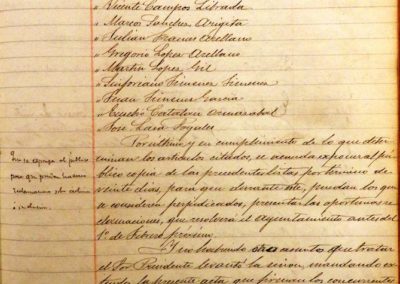 " Vicente Campos Librada
" Marcos Sanchez Arigita
" Julian Frances Arellano
" Gregorio Lopez Arellano
" Martin Lopez Gil
" Sinforiano Jimenez Jimenez
" Juan Jimenez Garcia
" Catalan
" Jose Lara
Por ultimo y en cumplimiento de lo que deter-
minan los articulos citados, se acuerda exponer al pú-
blico copia de las precedentes listas por termino de
veinte dias, para que durante este, puedan los que
se consideren perjudicados, presentar las oportunas re-
clamaciones, que resolverá el Ayuntamiento antes del
1º de Febrero próximo.
Y no habiendo otro asunto que tratar
el Sor Presidente levantó la sesion, mandando ex-
la presente acta que firman los concurrentes
Que se exponga al publico
para que puedan hacerse
reclamaciones